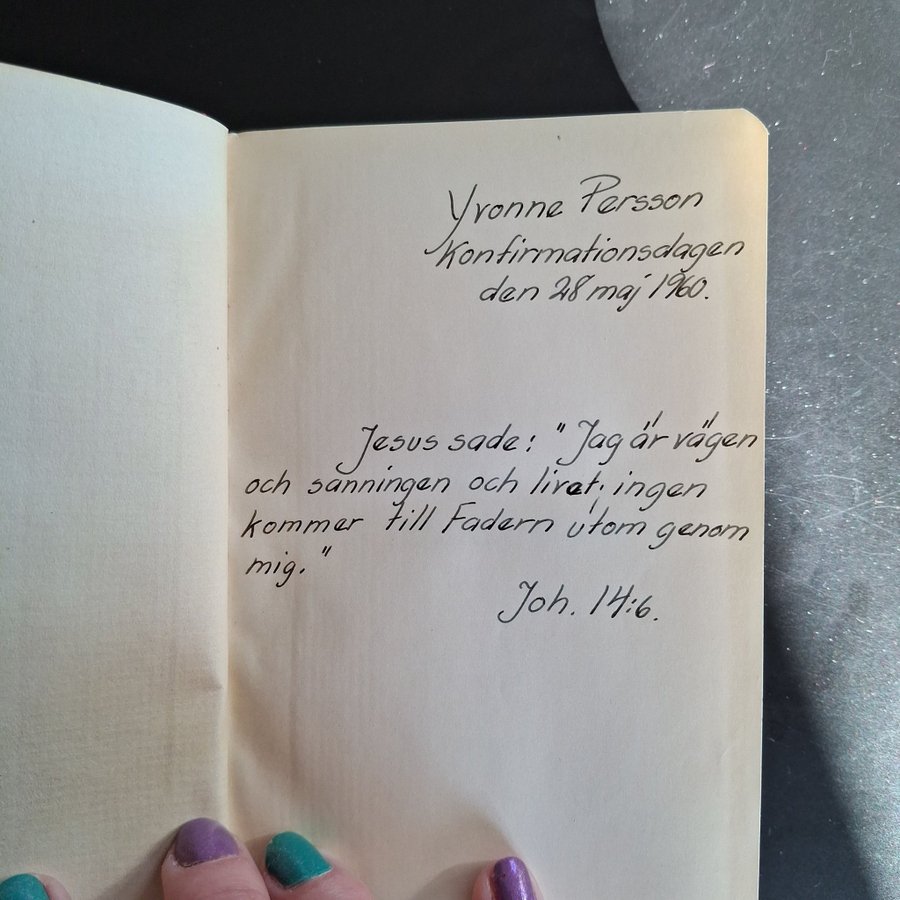 Yvonne Persson
Konfirmationsdagen
den 28 maj 1960.
Jesus sade: "Jag är vägen
och sanningen och livet; ingen
kommer till Fadern utom genom
mig."
Joh. 14:6.